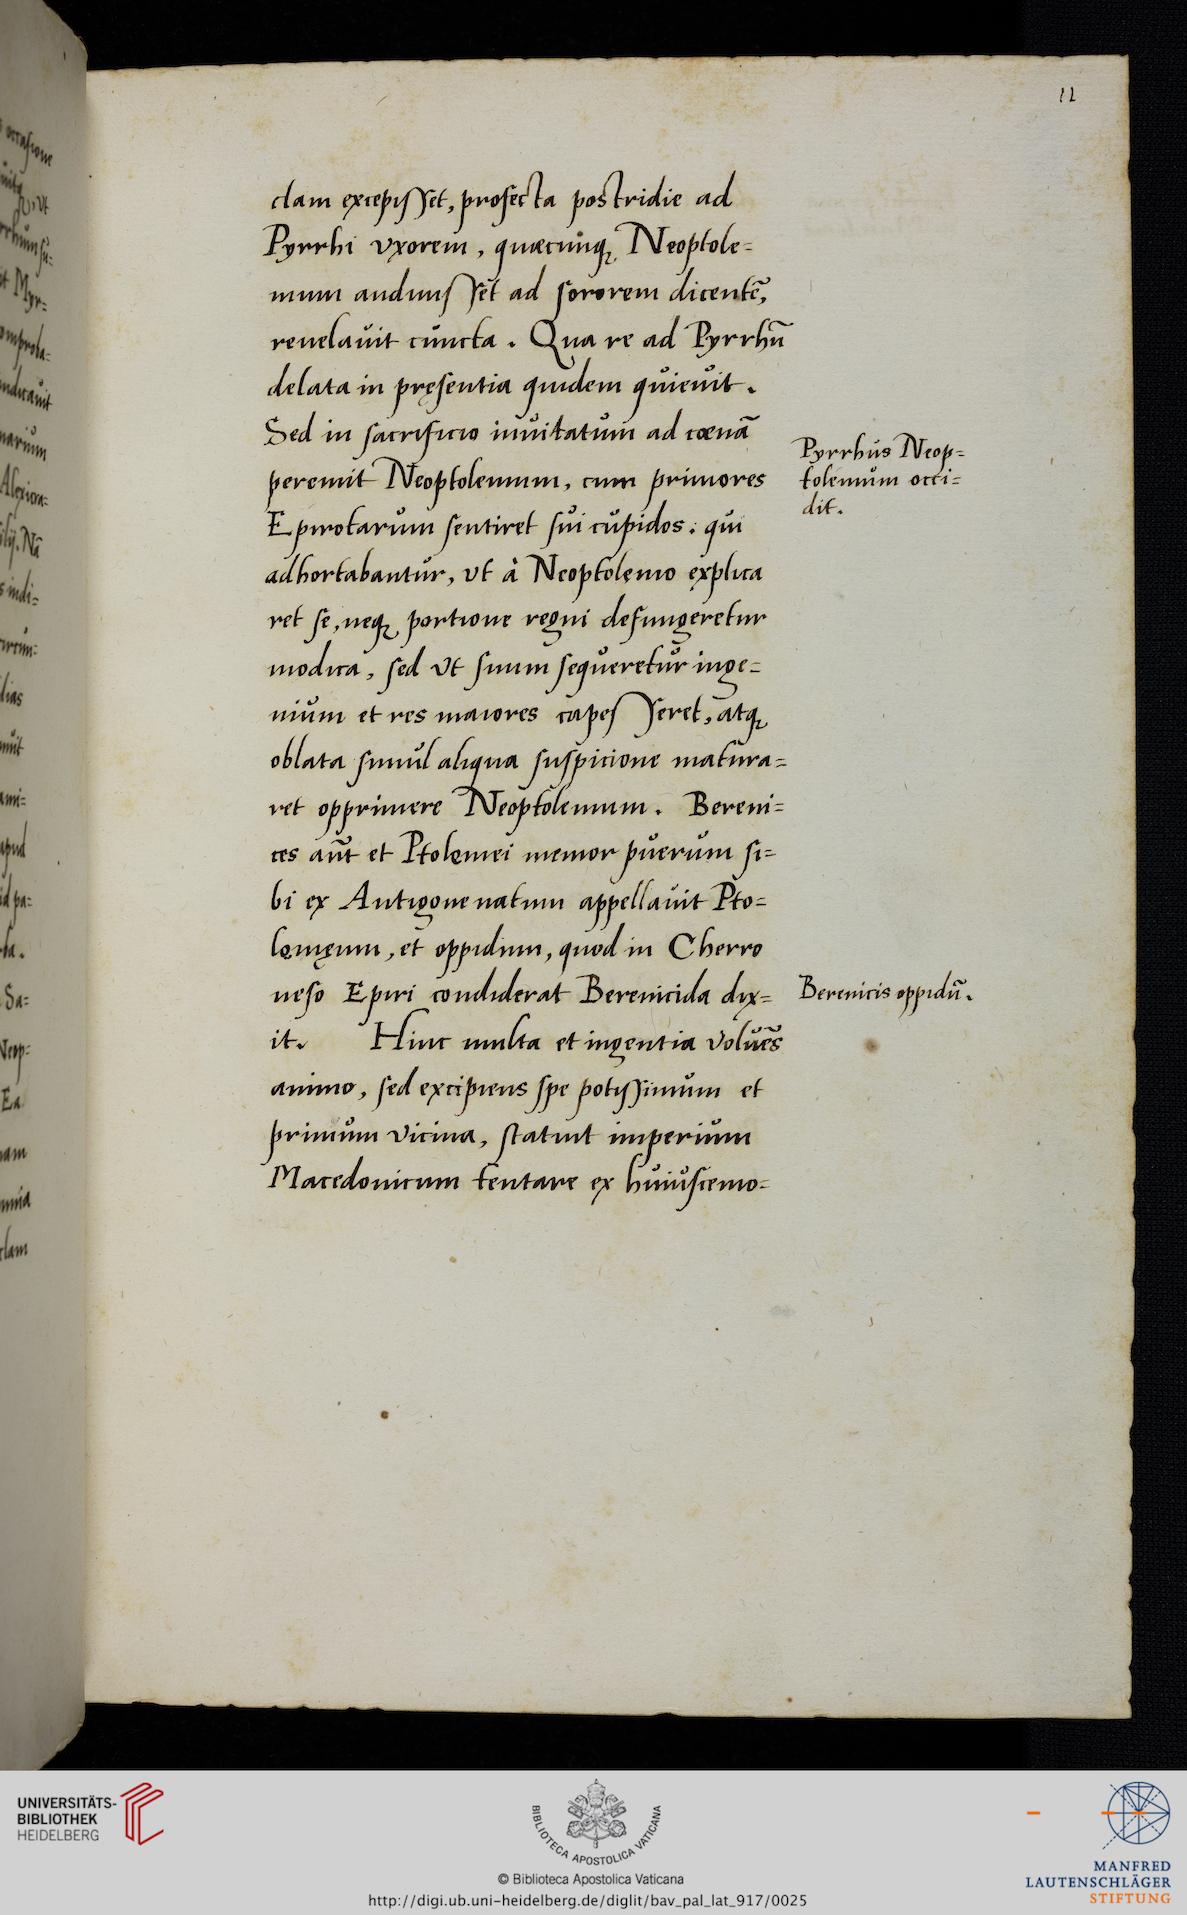 12
clam excepisset, profecta postridie ad
Pyrrhi vxorem, quæcunq; Neoptole=
mum audiuisset ad sororem dicentē,
reuelauit cuncta. Qua re ad Pyrrhū
delata in pręsentia quidem quieuit.
Sed in sacrificio inuitatum ad cœnā
peremit Neoptolemum, cum primores
Epirotarum sentiret sui cupidos: qui
adhortabantur, vt à Neoptolemo explica
ret se, neq; portione regni defungeretur
modica, sed vt suum sequeretur inge=
nium et res maiores capesseret, atq;
oblata simul aliqua suspicione matura=
ret opprimere Neoptolemum. Bereni=
ces aūt et Ptolemei memor puerum si=
bi ex Antigone natum appellauit Pto=
lemęum, et oppidum, quod in Cherro
neso Epiri condiderat Berenicida dix=
it. Hinc multa et ingentia voluēs
animo, sed excipiens spe potissimum et
primum vicina, statuit imperium
Macedonicum tentare ex huiuscemo=
Pyrrhus Neop=
tolemum occi=
dit.
Berenicis oppidū.
occasione
Myr=
omproba=
ndicauit
narium
Alexicra=
ilij. Nā
s indi=
circum=
dias
muit
ami=
apud
id pa=
ta.
Sa=
Neop=
Ea
nam
omnia
clam
UNIVERSITÄTS-
BIBLIOTHEK
HEIDELBERG
BIBLIOTECA APOSTOLICA VATICANA
© Biblioteca Apostolica Vaticana
http://digi.ub.uni-heidelberg.de/diglit/bav_pal_lat_917/0025
MANFRED
LAUTENSCHLÄGER
STIFTUNG